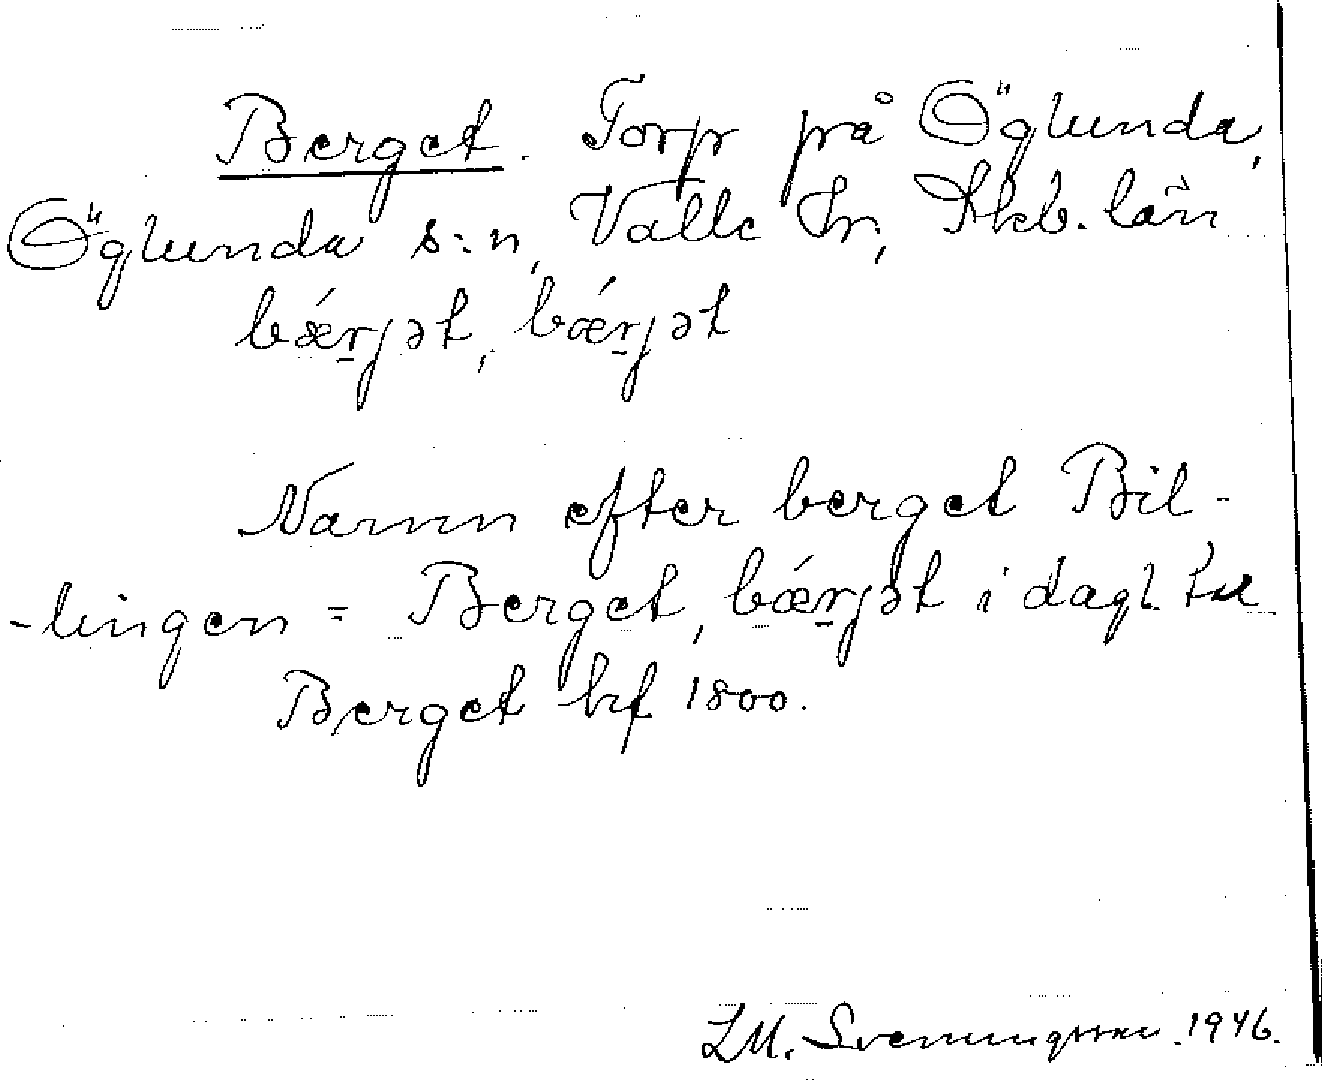 Berget. Torp på Öglunda,
Öglunda s:n, Valle hr, Skb. län
bǽr̠jət, bǽr̠jət
Namn efter berget Bil-
-lingen = Berget, bǽr̠jət i dagl. tal
Berget hfl 1800.
LM. Svenungsson. 1946.